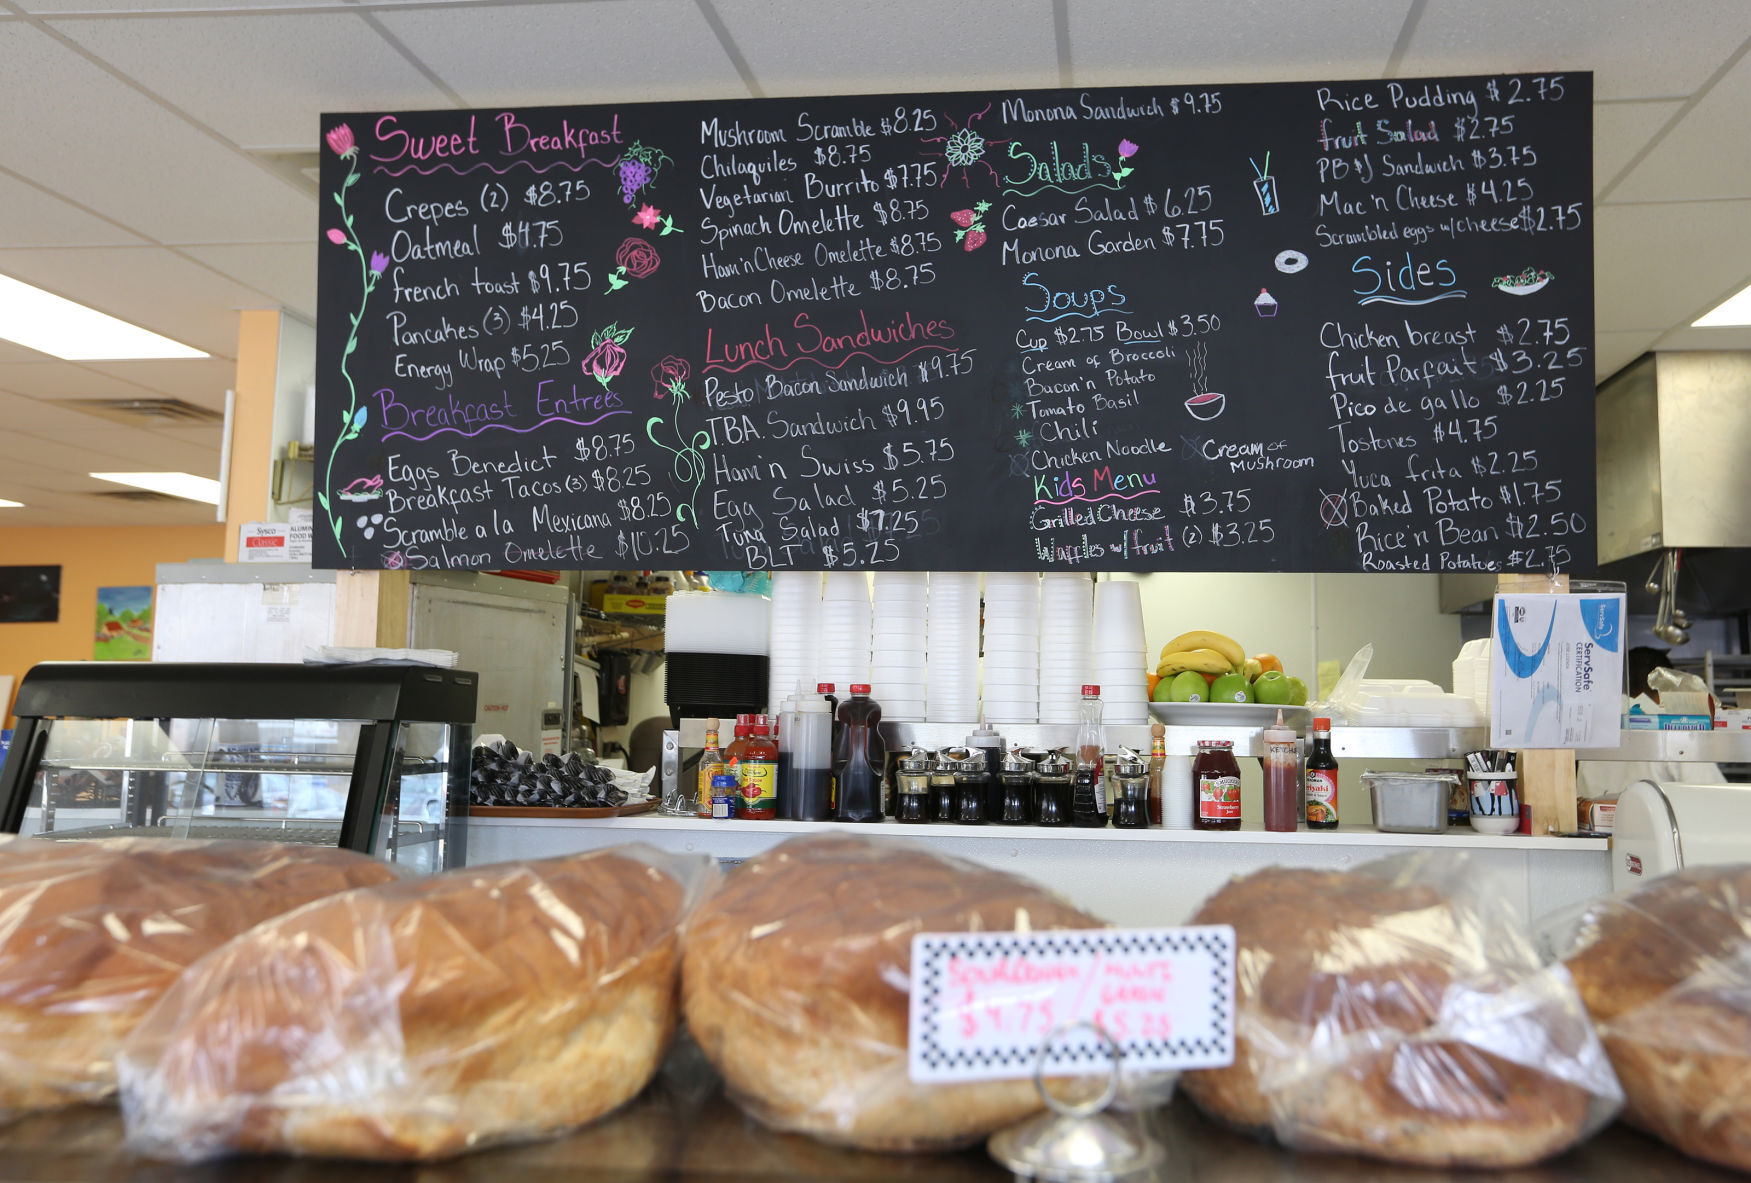 Sweet Breakfast
Crepes (2) $8.75
Oatmeal $4.75
french toast $9.75
Pancakes (3) $4.25
Energy Wrap $5.25
Breakfast Entrees
Eggs Benedict $8.75
Breakfast Tacos (3) $8.25
Scramble a la Mexicana $8.25
Salmon Omelette $10.25
Mushroom Scramble $8.25
Chilaquiles $8.75
Vegetarian Burrito $7.75
Spinach Omelette $8.75
Ham'n Cheese Omelette $8.75
Bacon Omelette $8.75
Lunch Sandwiches
Pesto Bacon Sandwich $9.75
T.B.A. Sandwich $9.95
Ham'n Swiss $5.75
Egg Salad $5.25
Tuna Salad $7.25
BLT $5.25
Monona Sandwich $9.75
Salads
Caesar Salad $6.25
Monona Garden $7.75
Soups
Cup $2.75 Bowl $3.50
Cream of Broccoli
Bacon'n Potato
Tomato Basil
Chili
Chicken Noodle
Cream of
Mushroom
Kids Menu
Grilled Cheese $3.75
Waffles w/fruit (2) $3.25
Rice Pudding $2.75
fruit Salad $2.75
PB&J Sandwich $3.75
Mac'n Cheese $4.25
Scrambled eggs w/cheese $2.75
Sides
Chicken breast $2.75
fruit Parfait $3.25
Pico de gallo $2.25
Tostones $4.75
Yuca frita $2.25
Baked Potato $1.75
Rice'n Bean $2.50
Roasted Potatoes $2.75
Sysco
Classic
ServSafe
ServSafe
CERTIFICATION
CAUTION HOT
KETCHUP
Strawberry
$4.75 / $5.25